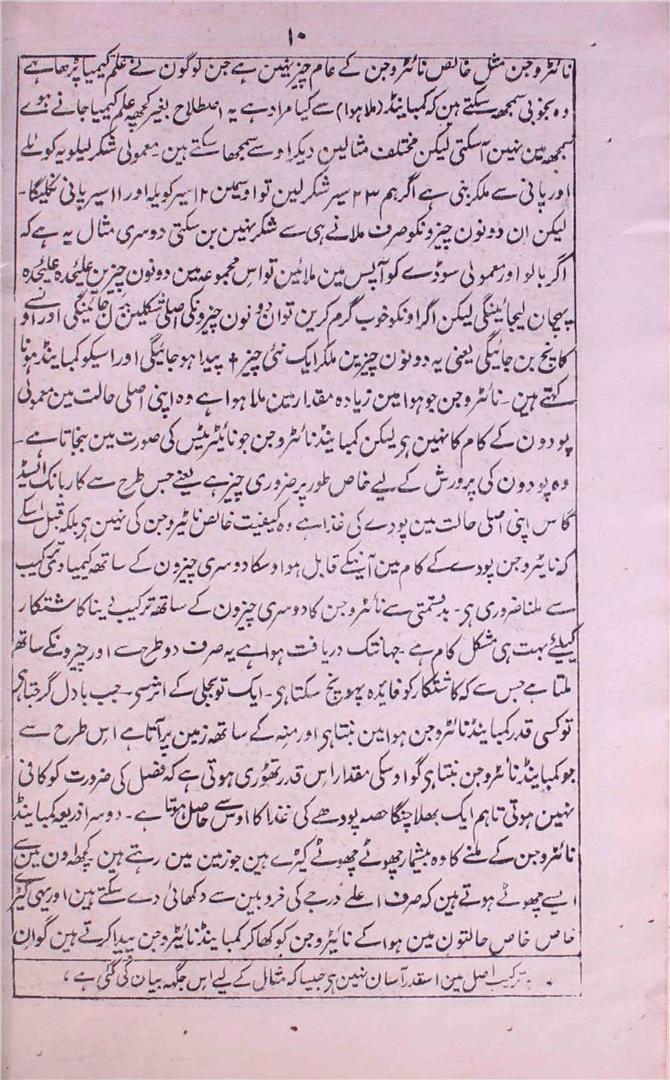 ۱۰
نائٹروجن مثل خالص نائٹروجن کے عام چیز نہین ہے جن لوگون نے علم کیمیا پڑھا ہے
وہ بخوبی سمجھ سکتے ہین کہ کمپاینڈ (ملا ہوا) سے کیا مراد ہے یہ اصطلاح بغیر کچھ علم کیمیا جانے ہوے
سمجھ مین نہین آسکتی لیکن مختلف مثالین دیکر اوسے سمجھا سکتے ہین۔ معمولی شکر لیلو یہ کوئلے
اور پانی سے ملکر بنی ہے اگر ہم ۲۳ سیر شکر لین تو اوسمین ۱۲ سیر کویلہ اور ۱۱ سیر پانی نکلیگا۔
لیکن ان دونون چیزونکو صرف ملانے ہی سے شکر نہین بن سکتی دوسری مثال یہ ہے کہ
اگر بالو اور معمولی سوڈے کو آپس مین ملائین تو اس مجموعہ مین دونون چیزین علیٰحدہ علیٰحدہ
پہچان لیجائینگی لیکن اگر اونکو خوب گرم کرین تو ان دونون چیزونکی اصلی شکلین جائینگی اور اونسے
کانچ بن جائیگی یعنی یہ دونون چیزین ملکر ایک نئی چیز † پیدا ہو جائیگی اور اسیکو کمپاینڈ ہونا
کہتے ہین۔ نائٹروجن جو ہوا مین زیادہ مقدار مین ملا ہوا ہے وہ اپنی اصلی حالت مین معمولی
پودون کے کام کا نہین ہی لیکن کمپاینڈ نائٹروجن جو نائٹریٹس کی صورت مین بنجاتا ہے۔
وہ پودون کی پرورش کے لیے خاص طور پر ضروری چیز ہے یعنے جس طرح سے کاربانک ایسڈ
گاس اپنی اصلی حالت مین پودے کی غذا ہے وہ کیفیت خالص نائٹروجن کی نہین ہی بلکہ قبل اسکے
کہ نائٹروجن پودے کے کام مین آنیکے قابل ہو اوسکا دوسری چیزون کے ساتھ کیمیاوی ترکیب
سے ملنا ضروری ہی۔ بدقسمتی سے نائٹروجن کا دوسری چیزون کے ساتھ ترکیب دینا کاشتکار
کیلئے بہت ہی مشکل کام ہے۔ جہانتک دریافت ہوا ہے یہ صرف دو طرح سے اور چیزونکے ساتھ
ملتا ہے جس سے کہ کاشتکار کو فایدہ پہونچ سکتا ہی۔ ایک تو بجلی کے اثر سی۔ جب بادل گرجتا ہی
تو کسی قدر کمپاینڈ نائٹروجن ہوا مین بنتا ہی اور منہ کے ساتھ زمین پر آتا ہے اس طرح سے
جو کمپاینڈ نائٹروجن بنتا ہی گو اوسکی مقدار اس قدر تھوڑی ہوتی ہے کہ فصل کی ضرورت کو کافی
نہین ہوتی تاہم ایک بھلا چنگا حصہ پودھے کی غذا کا اوس سے حاصل ہوتا ہے۔ دوسرا ذریعہ کمپاینڈ
نائٹروجن کے ملنے کا وہ بیشمار چھوٹے چھوٹے کیڑے ہین جو زمین مین رہتے ہین۔ کچھ اون مین سے
ایسے چھوٹے ہوتے ہین کہ صرف اعلے درجے کی خردبین سے دکھائی دے سکتے ہین اور یہی کیڑے
خاص خاص حالتون مین ہوا کے نائٹروجن کو کھا کر کمپاینڈ نائٹروجن پیدا کرتے ہین گو ان
ترکیب اصل مین اسقدر آسان نہین ہی جیسا کہ مثال کے لیے اس جگہ بیان کی گئی ہے